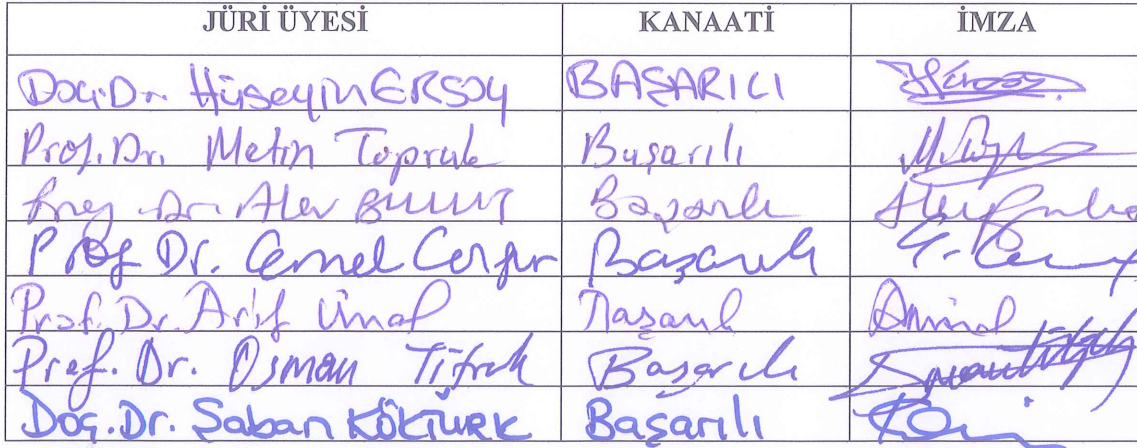 JÜRİ ÜYESİ KANAATİ İMZA
Doç.Dr. Hüseyin ERSOY BAŞARILI
Prof.Dr. Metin Toprak Başarılı
Dr. Alev BULUT Başarılı
Prof Dr. Cemel Başarılı
Prof. Dr. Arif Ünal Başarılı
Prof. Dr. Osman Titrek Başarılı
Doç.Dr. Şaban KÖKTÜRK Başarılı